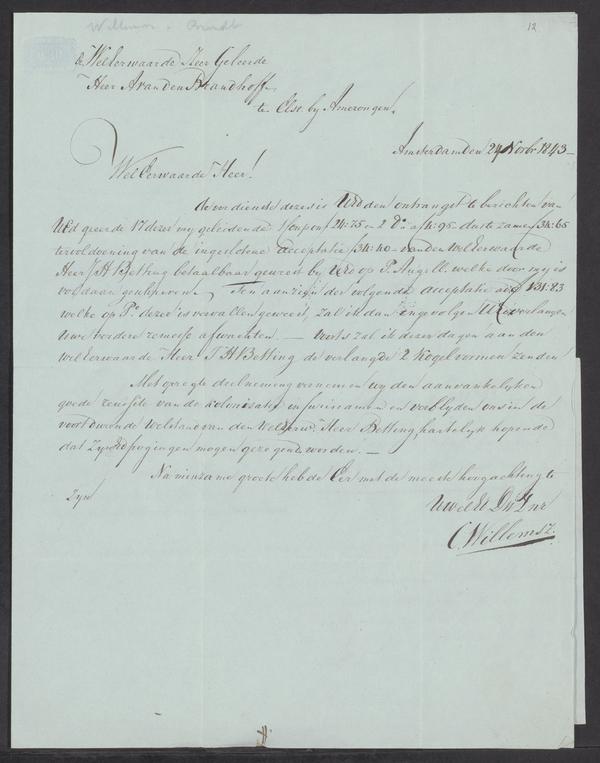 12
de WelEerwaarde Zeer Geleerde
Heer A van den Brandhoff
te Elst by Amerongen.
Amsterdam den 24 Novbr 1843
WelEerwaarde Heer!
Ter dienste dezes is UEd den ontvangst te berichten van
UEd geeerde 17 dezer my geleidende 1 Coupon f 24:75 en 2 do a f 4:95 dus te zamen f 34:65
ter voldoening van de ingeslotene acceptatie f 34:40 van den WelEerwaarde
Heer J H Betting betaalbaar geweest by UEd op P. Angell. welke door my is
voldaan geschreven. Ten aanzien der volgende acceptatie ad f 131:83
welke op Po dezer is vervallen geweest, zal ik dan ingevolgen UEd verlangen
Uwe verdere remesse afwachten. — Voorts zal ik dezer dagen aan den
welEerwaarde Heer J H Betting de verlangde 2 Kogelvormen zenden
Met opregte deelneming vernemen wy den aanvankelyken
goede van de Kolonisatie in Surinamen en verblyden ons in de
voortdurende welstand van den WelEerw. Heer Betting, hartelyk hopende
dat Zyn Ed pogingen mogen gezegend worden. —
Na minzame groete heb de Eer met de meeste hoogachting te
Zyn
UWelEd Dw Dnr
C. Willemsz.